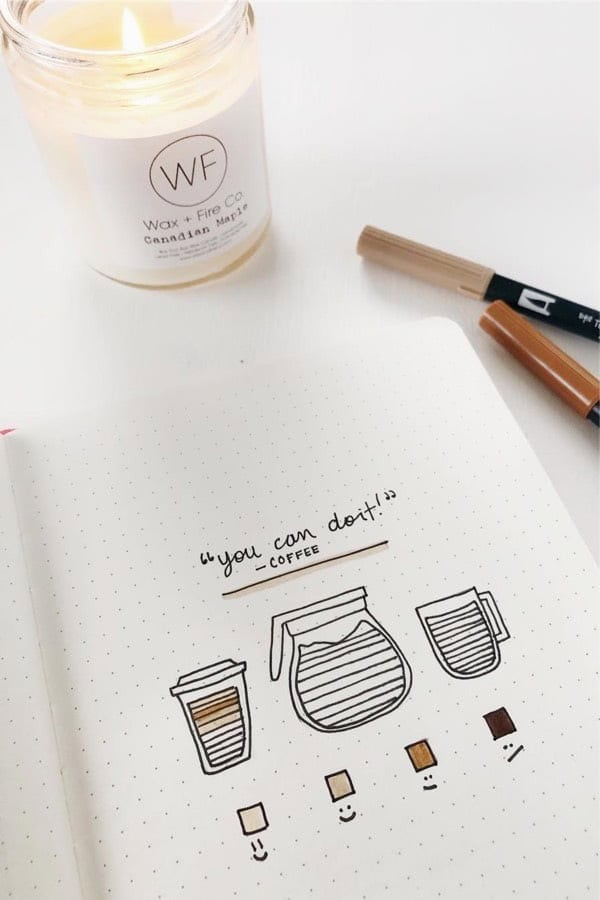 WF
Wax + Fire Co.
Canadian Maple
"you can do it!"
- COFFEE